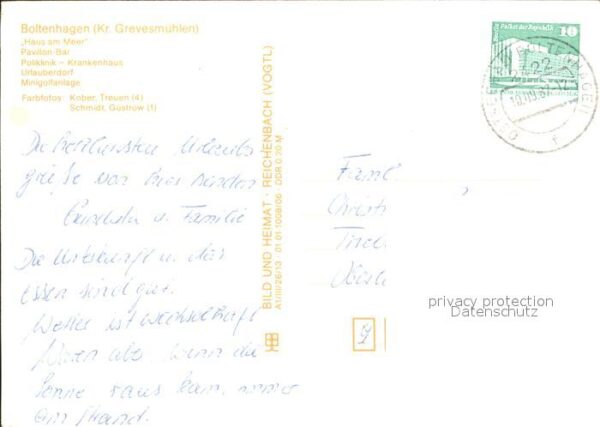 Boltenhagen (Kr. Grevesmühlen)
„Haus am Meer"
Pavillon-Bar
Poliklinik – Krankenhaus
Urlauberdorf
Minigolfanlage
Farbfotos: Kober, Treuen (4)
Schmidt, Güstrow (1)
Die herzlichsten Urlaubs
grüße von Ihren Kindern
u. Familie
Die Unterkunft u. das
Essen sind gut.
Wetter ist wechselhaft
Waren aber, wenn die
Sonne raus kam, immer
am Strand.
BILD UND HEIMAT · REICHENBACH (VOGTL)
A1/III/26/13 01 01 1008/06 DDR 0,20 M
Palast der Republik
10
DDR
OSTSEEBAD
Fam
Christ
privacy protection
Datenschutz